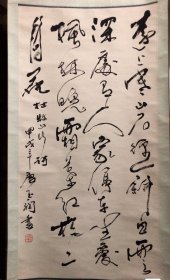 遠上寒山石徑斜白雲
深處有人家停車坐愛
楓林晚霜葉紅於二
月花 杜牧山行詩
甲戌年 書